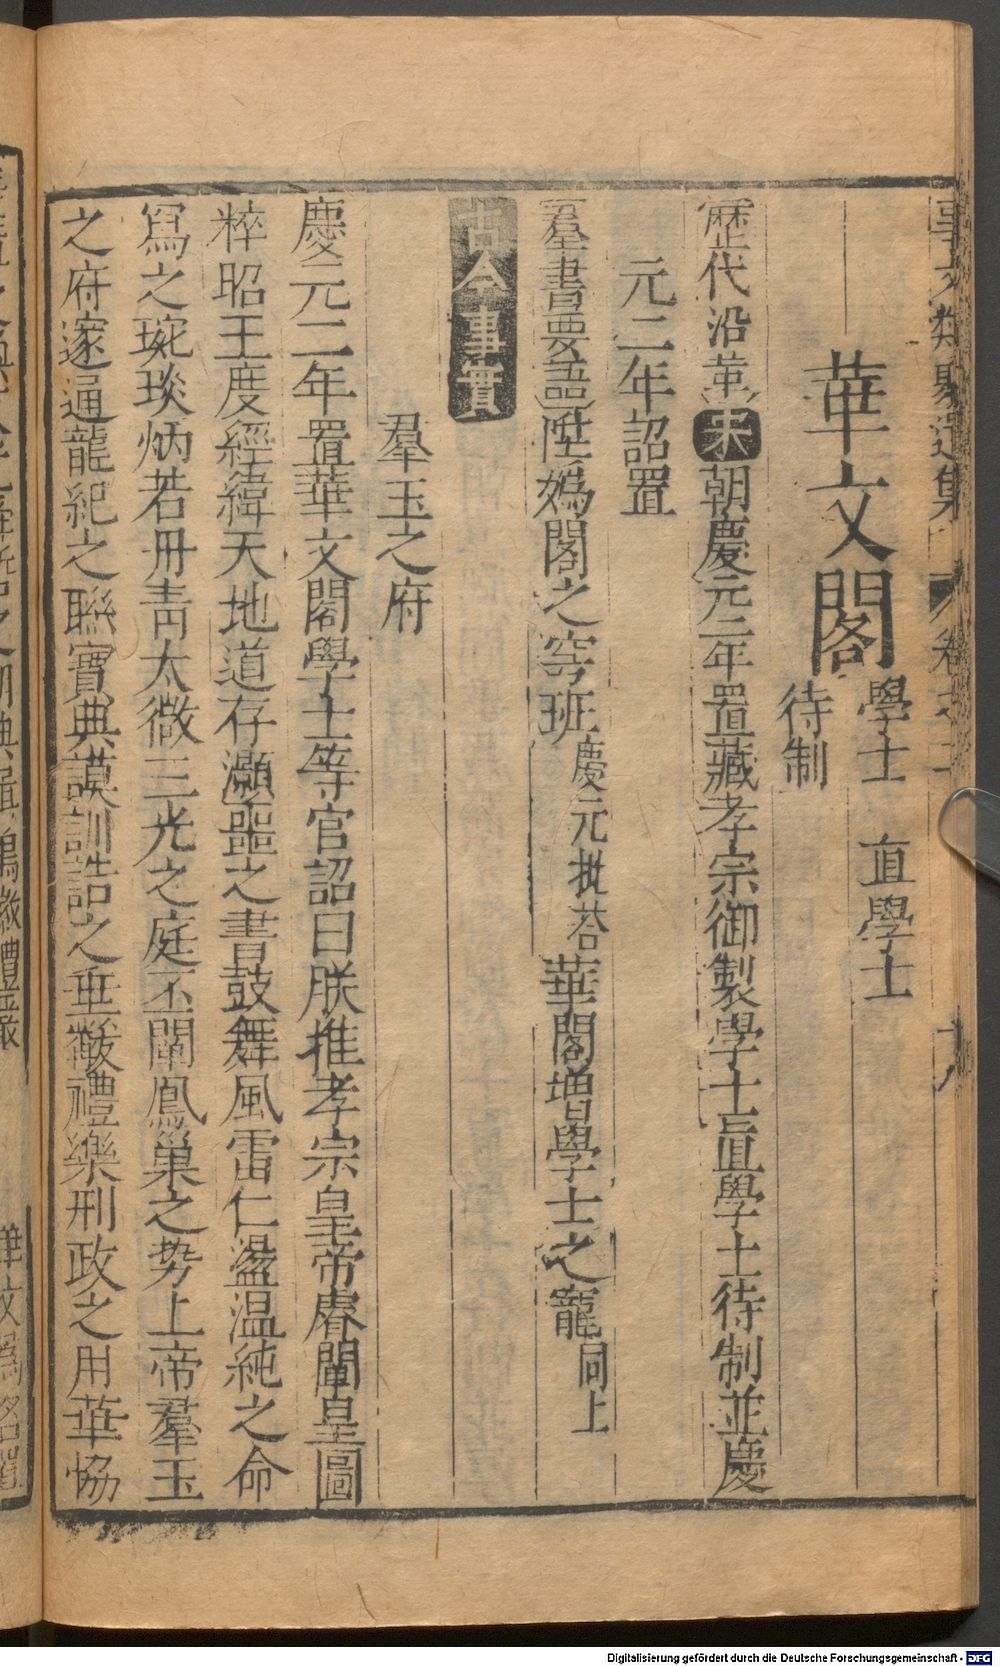 華文閣 學士 直學士
待制
歷代沿革 宋朝慶元二年置藏孝宗御製學士直學士待制並慶
元二年詔置
羣書要語 陞媯閣之穹班慶元批荅 華閣增學士之寵同上
古今事實
羣玉之府
慶元二年置華文閣學士等官詔曰朕惟孝宗皇帝睿闡皇圖
粹昭王度經緯天地道存灝噩之書鼓舞風雷仁溢温純之命
寫之琬琰炳若丹青太微三光之庭丕闡鳳巢之势上帝羣玉
之府邃通龍紀之聯寶典謨訓誥之垂黻禮樂刑政之用華恊
Digitalisierung gefördert durch die Deutsche Forschungsgemeinschaft - DFG